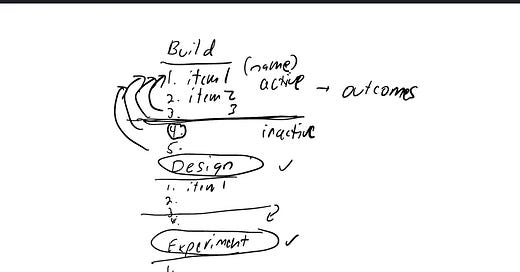 Build
1. item1 (name)
active → outcomes
2. item2
3. 3
4. inactive
5.
Design ✓
1. item1
2.
3
4.
Experiment ✓
1.